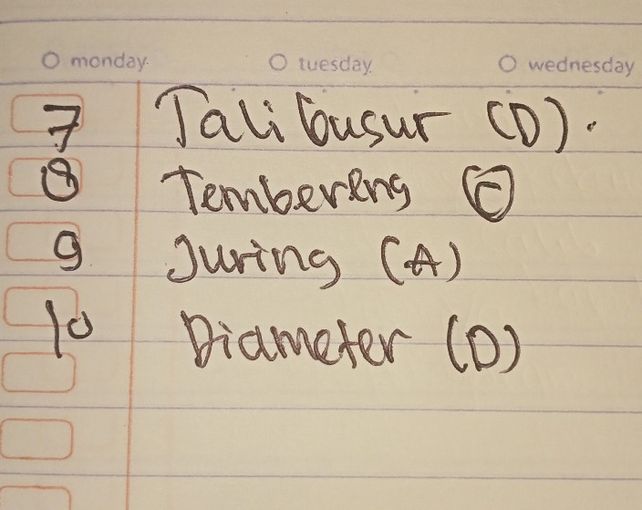 monday tuesday wednesday
7 Tali busur (D).
8 Tembereng (C)
9 Juring (A)
10 Diameter (D)